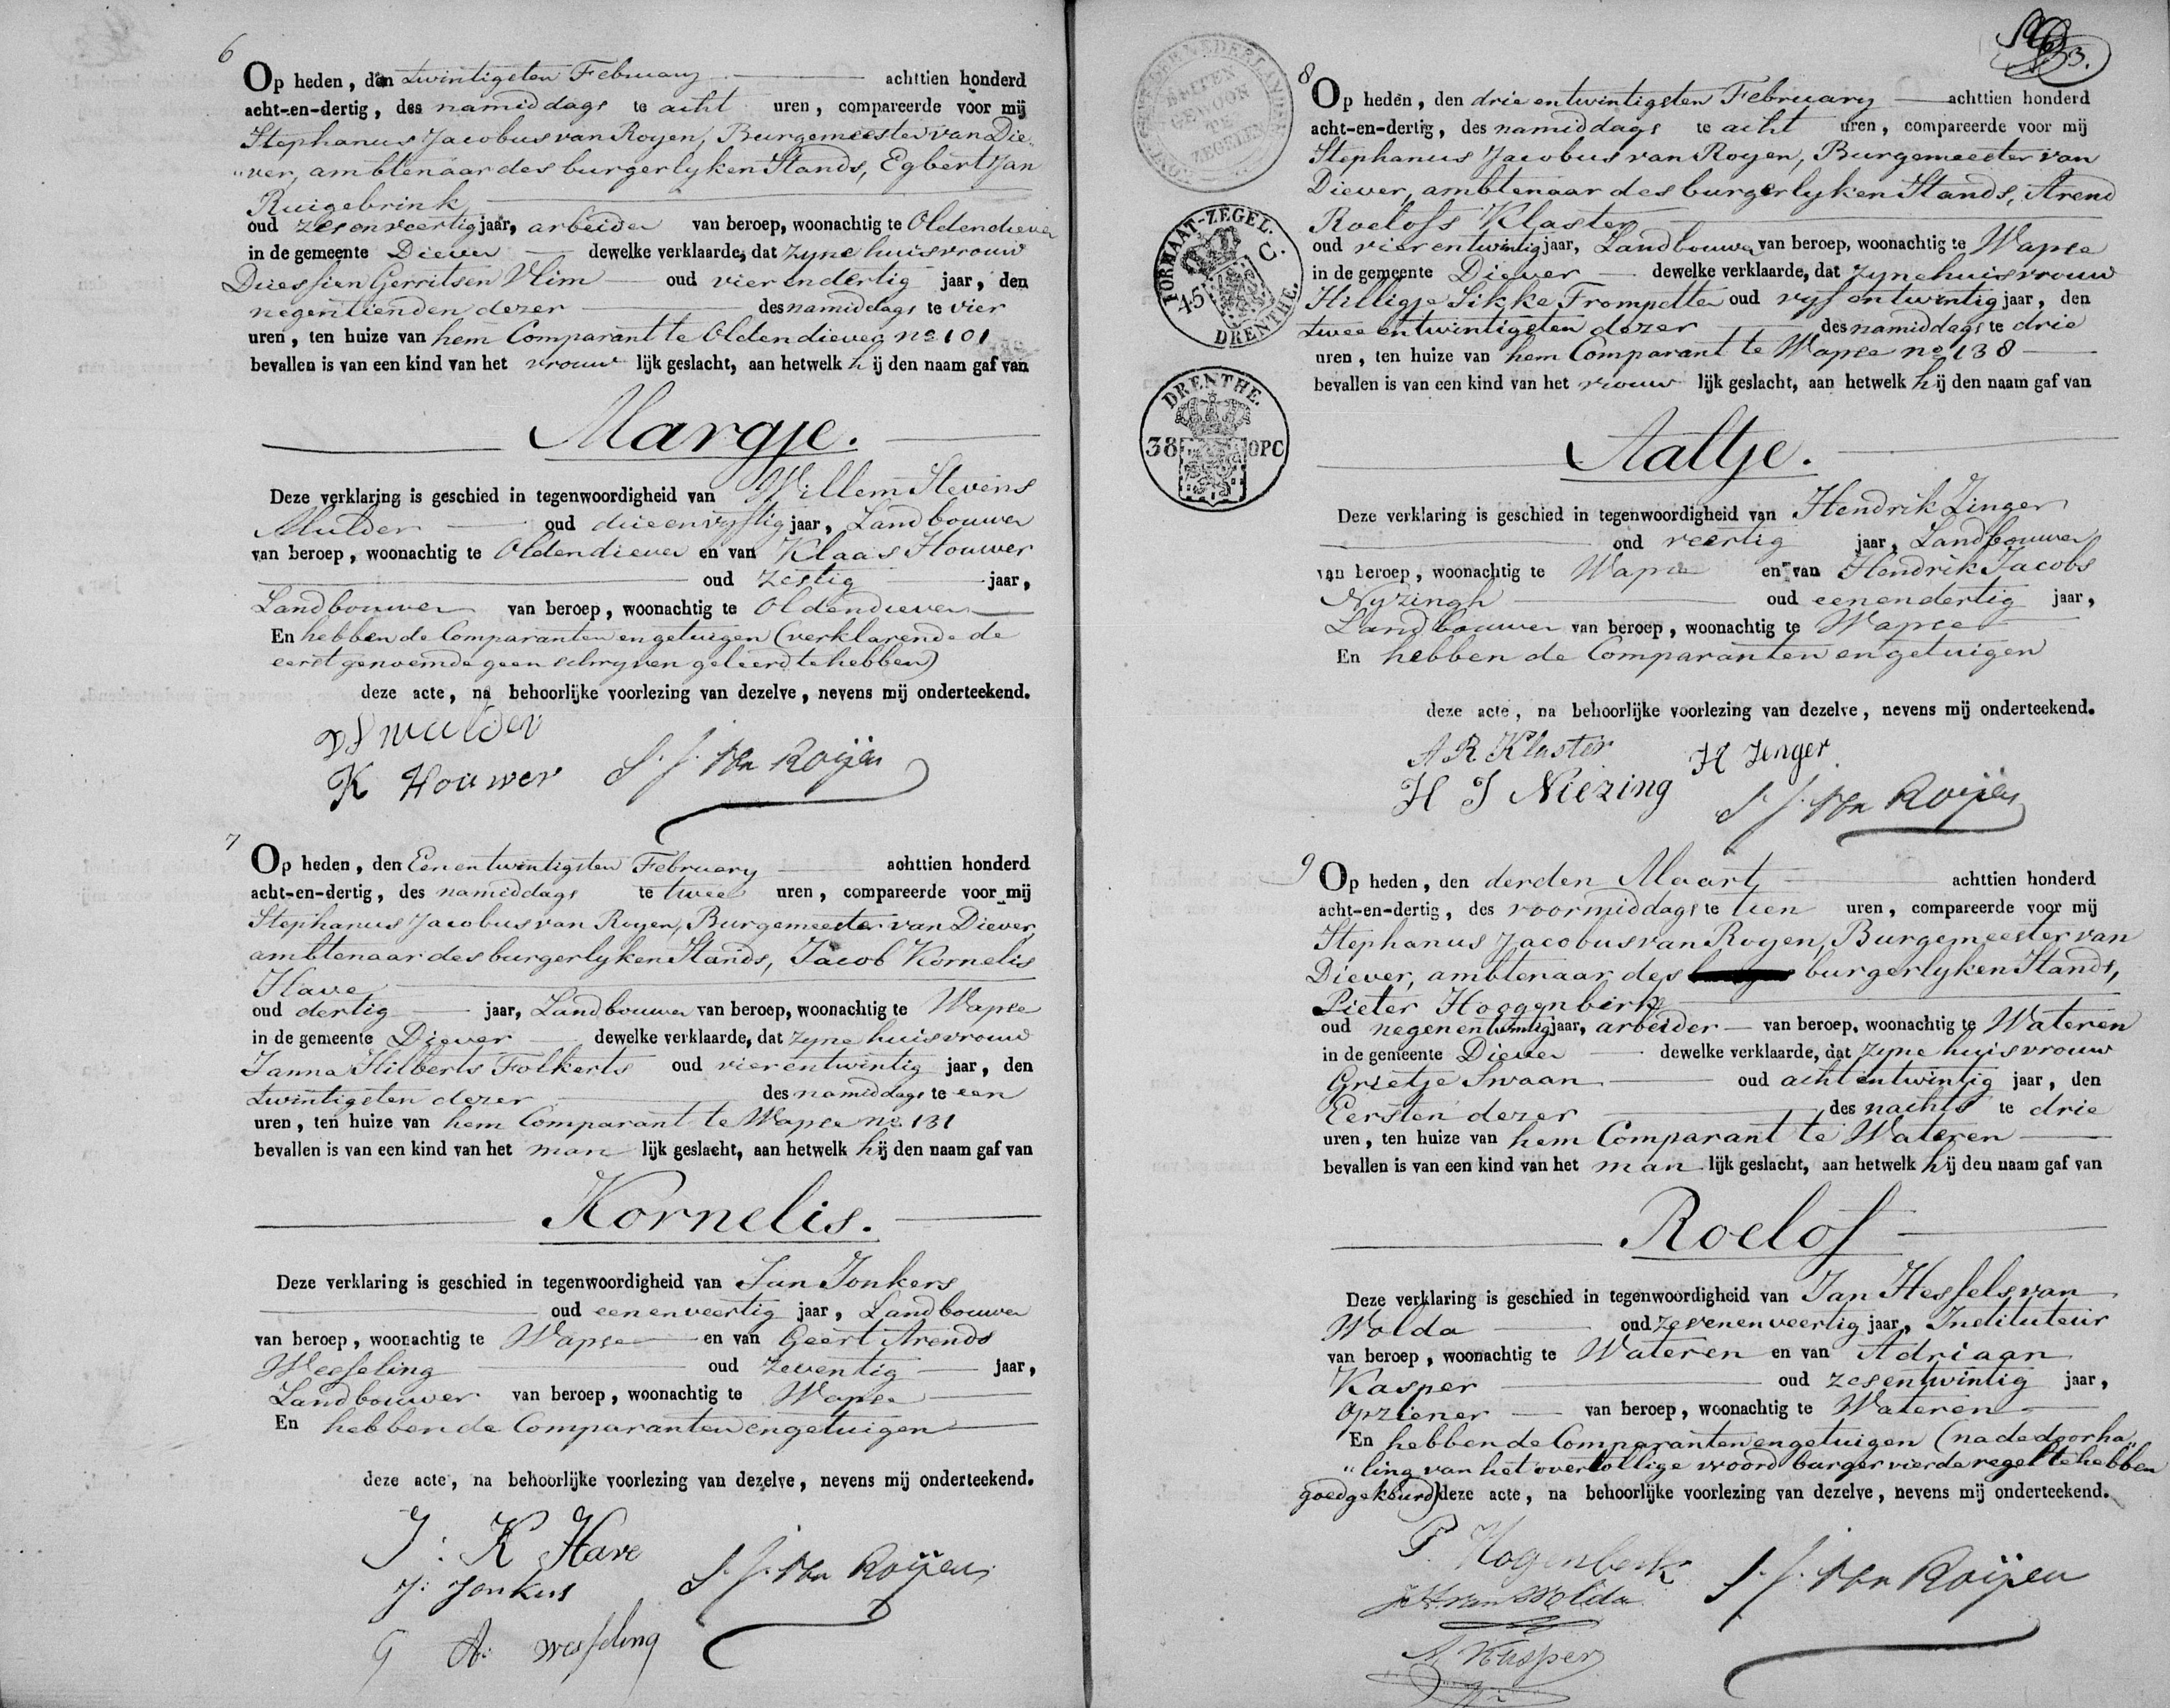 6
Op heden, den twintigsten February achttien honderd
acht-en-dertig, des namiddags te acht uren, compareerde voor mij
Stephanus Jacobus van Royen, Burgemeester van Die-
"ver, ambtenaar des burgerlyken Stands, Egbert Jan
Ruigebrink
oud zesenveertig jaar, arbeider van beroep, woonachtig te Oldendiever
in de gemeente Diever dewelke verklaarde, dat zyne huisvrouw
Gerritsen Vlim oud vierendertig jaar, den
negentienden dezer des namiddags te vier
uren, ten huize van hem Comparant te Oldendiever no 101
bevallen is van een kind van het vrouw lijk geslacht, aan hetwelk hij den naam gaf van
Margje.
Deze verklaring is geschied in tegenwoordigheid van Willem Stevens
Mulder oud drieenvyftig jaar, Landbouwer
van beroep, woonachtig te Oldendiever en van Klaas Houwer
oud zestig jaar,
Landbouwer van beroep, woonachtig te Oldendiever
En hebben de Comparanten en getuigen (verklarende de
eerstgenoemde geen schryven geleerd te hebben)
deze acte, na behoorlijke voorlezing van dezelve, nevens mij onderteekend.
WS mulder
K Houwer S. J. Van Roijen
7
Op heden, den Eenentwintigsten February achttien honderd
acht-en-dertig, des namiddags te twee uren, compareerde voor mij
Stephanus Jacobus van Royen, Burgemeester van Diever,
ambtenaar des burgerlyken Stands, Jacob Kornelis
Have
oud dertig jaar, Landbouwer van beroep, woonachtig te Wapse
in de gemeente Diever dewelke verklaarde, dat zyne huisvrouw
Janna Hilberts Folkerts oud vierentwintig jaar, den
twintigsten dezer des namiddags te een
uren, ten huize van hem Comparant te Wapse no 131
bevallen is van een kind van het man lijk geslacht, aan hetwelk hij den naam gaf van
Kornelis.
Deze verklaring is geschied in tegenwoordigheid van Jan Jonkers
oud eenenveertig jaar, Landbouwer
van beroep, woonachtig te Wapse en van Geert Arends
Wesseling oud zeventig jaar,
Landbouwer van beroep, woonachtig te Wapse
En hebben de Comparanten en getuigen
deze acte, na behoorlijke voorlezing van dezelve, nevens mij onderteekend.
J: K Have
J: Jonkers S. J. Van Roijen
G A: Wesseling
3.
BUITEN
GEWOON
TE
ZEGELEN
FORMAAT-ZEGEL.
C.
45
DRENTHE.
DRENTHE.
38 OPC
8
Op heden, den drieentwintigsten February achttien honderd
acht-en-dertig, des namiddags te acht uren, compareerde voor mij
Stephanus Jacobus van Royen, Burgemeester van
Diever, ambtenaar des burgerlyken Stands, Arend
Roelofs Klaster
oud vierentwintig jaar, Landbouwer van beroep, woonachtig te Wapse
in de gemeente Diever dewelke verklaarde, dat zyne huisvrouw
Hilligje Sikke Trompetter oud vyfentwintig jaar, den
tweeentwintigsten dezer des namiddags te drie
uren, ten huize van hem Comparant te Wapse no 138
bevallen is van een kind van het vrouw lijk geslacht, aan hetwelk hij den naam gaf van
Aaltje.
Deze verklaring is geschied in tegenwoordigheid van Hendrik Zinger
oud veertig jaar, Landbouwer
van beroep, woonachtig te Wapse en van Hendrik Jacobs
Nyzingh oud eenendertig jaar,
Landbouwer van beroep, woonachtig te Wapse
En hebben de Comparanten en getuigen
deze acte, na behoorlijke voorlezing van dezelve, nevens mij onderteekend.
A R Klaster H Zinger
H J Niezing S. J. Van Roijen
9
Op heden, den derden Maart achttien honderd
acht-en-dertig, des voormiddags te tien uren, compareerde voor mij
Stephanus Jacobus van Royen, Burgemeester van
Diever, ambtenaar des burgerlyken Stands,
Pieter Hooggenberk
oud negenentwintig jaar, arbeider van beroep, woonachtig te Wateren
in de gemeente Diever dewelke verklaarde, dat zyne huisvrouw
Grietje Swaan oud achtentwintig jaar, den
Eersten dezer des nachts te drie
uren, ten huize van hem Comparant te Wateren
bevallen is van een kind van het man lijk geslacht, aan hetwelk hij den naam gaf van
Roelof
Deze verklaring is geschied in tegenwoordigheid van Jan Hessels van
Wolda oud zevenenveertig jaar, Instituteur
van beroep, woonachtig te Wateren en van Adriaan
Kasper oud zesentwintig jaar,
Opziener van beroep, woonachtig te Wateren
En hebben de Comparanten en getuigen (na de doorha-
"ling van het overtollige woord burger vierde regel te hebben
goedgekeurd) deze acte, na behoorlijke voorlezing van dezelve, nevens mij onderteekend.
P. Hogenberk
J H van Wolda S. J. Van Roijen
A Kasper